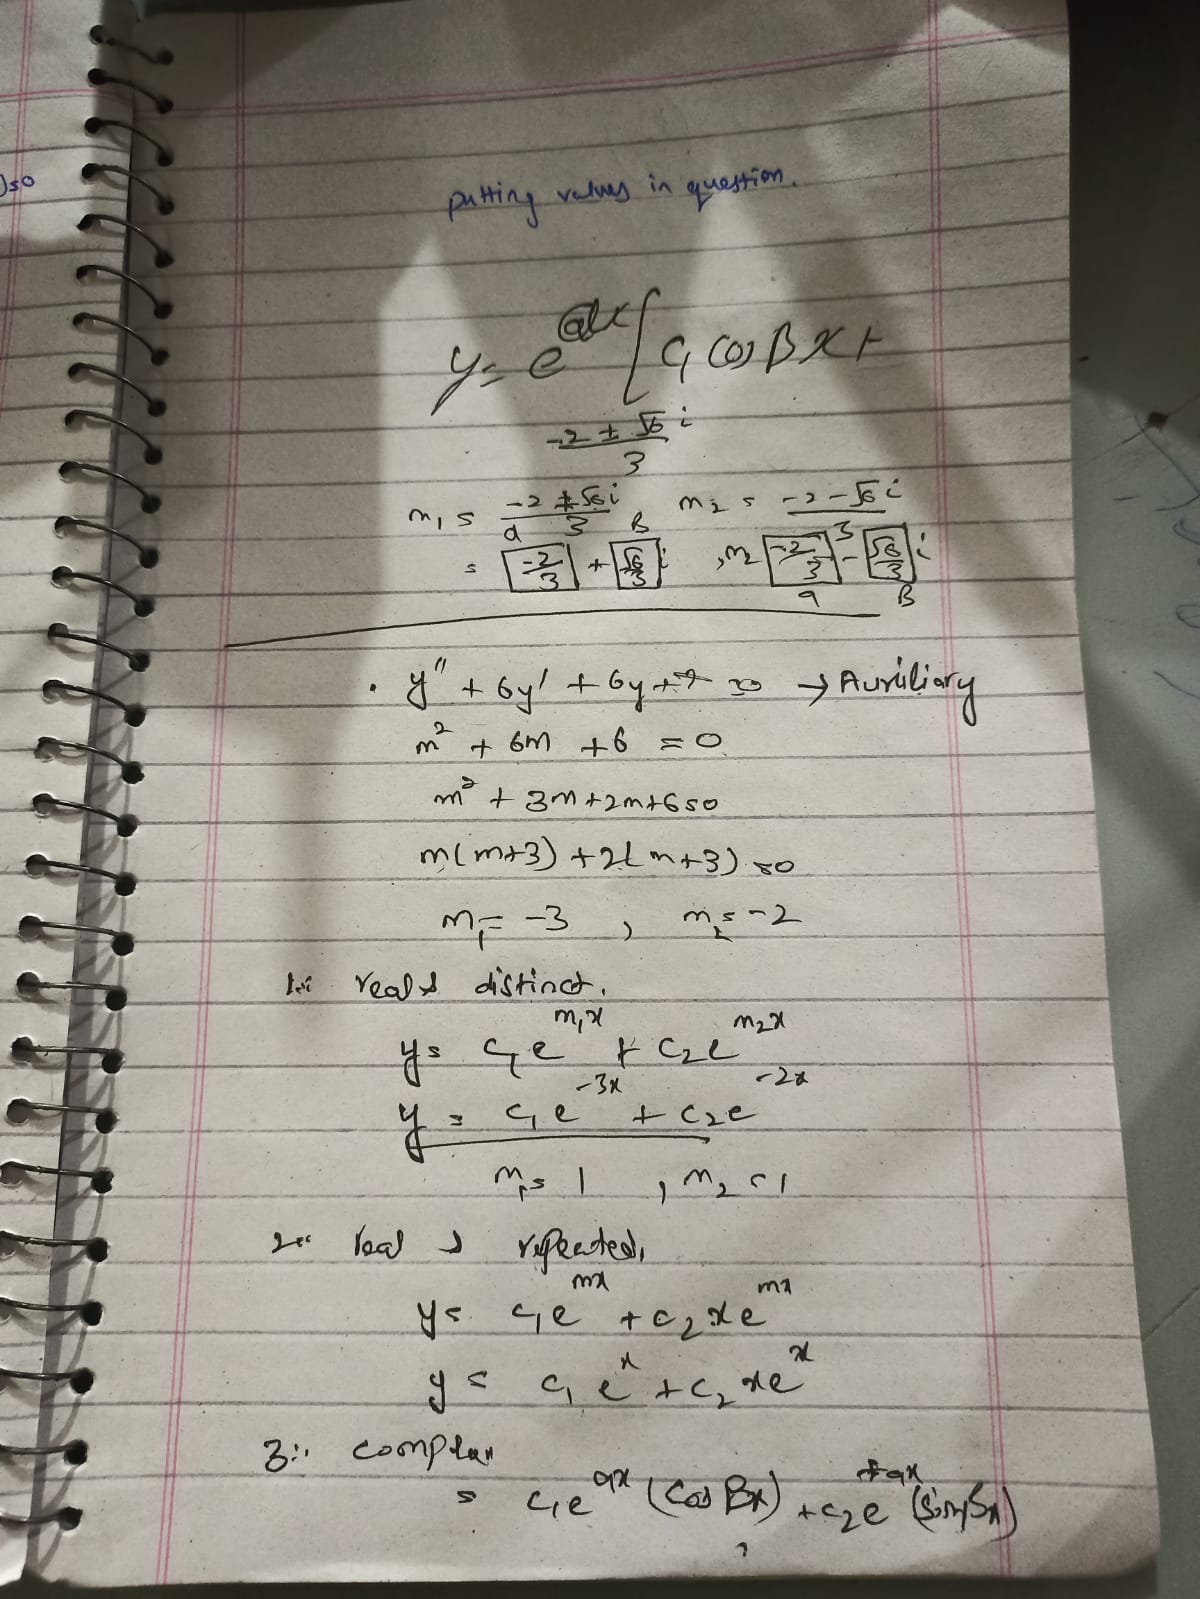 so
putting values in question.
y = e^αx [ C₁ cos βx +
(-2 ± √6 i)/3
m₁ = (-2 + √6 i)/3 m₂ = (-2 - √6 i)/3
a B
= -2/3 + √6/3 i , m₂ -2/3 - √6/3 i
a B
. y'' + 6y' + 6y = 0 → Auxiliary
m² + 6m + 6 = 0
m² + 3m + 2m + 6 = 0
m(m+3) + 2(m+3) = 0
m₁ = -3 , m₂ = -2
1:: real & distinct.
y = c₁e^m₁x + c₂e^m₂x
y = c₁e^-3x + c₂e^-2x
m₁ = 1 , m₂ = 1
2:: real & repeated,
y = c₁e^mx + c₂xe^mx
y = c₁e^x + c₂xe^x
3:: complex
= c₁e^ax (Cos Bx) + c₂e^ax (Sin Bx)